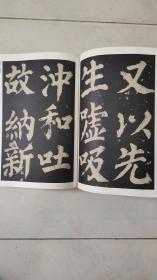 又以先
生嘘吸
沖和吐
故納新